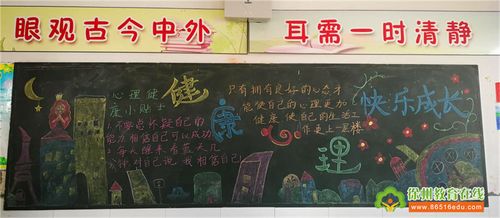 眼观古今中外
耳需一时清静
心理健
康小贴士
1、不要总怀疑自己的
能力相信自己可以成功
2、每天醒来看蓝天几
3、针对自己说我相信自己
健
康
只有拥有良好的心态才
能使自己的心理更加
健康使自己的生活工
作更上一层楼
理
快乐成长
徐州教育在线
www.86516edu.com